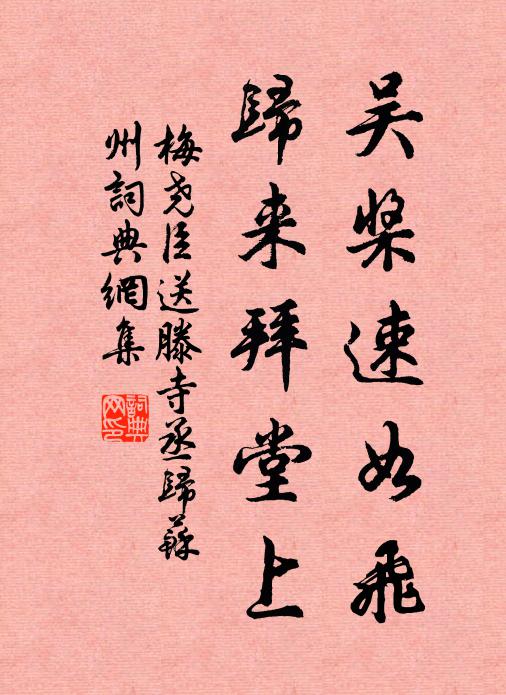 吴槳速如飛
歸来拜堂上
梅尧臣送滕寺丞歸蘇
州詞典網集
詞典网印